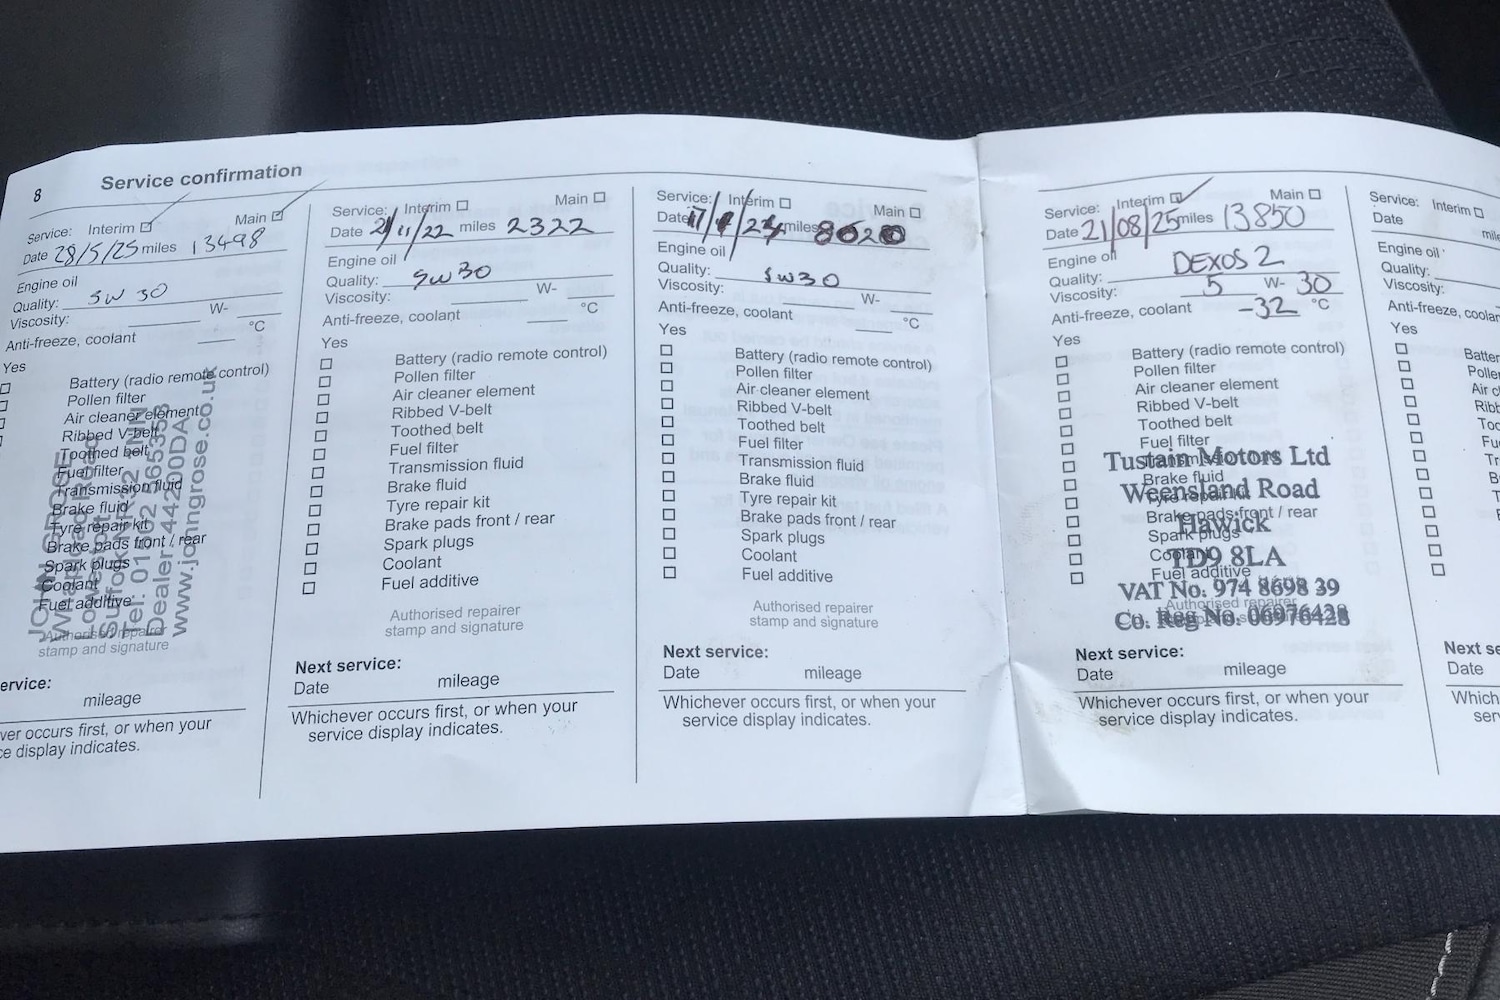 8
Service confirmation
Service: Interim Main
Date 28/5/25 miles 13498
Engine oil
Quality: 5W 30
Viscosity: W-
Anti-freeze, coolant °C
Yes
Battery (radio remote control)
Pollen filter
Air cleaner element
Ribbed V-belt
Toothed belt
Fuel filter
Transmission fluid
Brake fluid
Tyre repair kit
Brake pads front / rear
Spark plugs
Coolant
Fuel additive
Authorised repairer
stamp and signature
JOHN GROSE
Whapload Road
Lowestoft
Suffolk NR32 1NN
Tel: 01502 565353
Dealer 44200DA
www.johngrose.co.uk
ervice:
mileage
ver occurs first, or when your
ce display indicates.
Service: Interim Main
Date 21/11/22 miles 2322
Engine oil
Quality: 5W30
Viscosity: W-
Anti-freeze, coolant °C
Yes
Battery (radio remote control)
Pollen filter
Air cleaner element
Ribbed V-belt
Toothed belt
Fuel filter
Transmission fluid
Brake fluid
Tyre repair kit
Brake pads front / rear
Spark plugs
Coolant
Fuel additive
Authorised repairer
stamp and signature
Next service:
Date mileage
Whichever occurs first, or when your
service display indicates.
Service: Interim Main
Date miles
Engine oil
Quality: 5W30
Viscosity: W-
Anti-freeze, coolant °C
Yes
Battery (radio remote control)
Pollen filter
Air cleaner element
Ribbed V-belt
Toothed belt
Fuel filter
Transmission fluid
Brake fluid
Tyre repair kit
Brake pads front / rear
Spark plugs
Coolant
Fuel additive
Authorised repairer
stamp and signature
Next service:
Date mileage
Whichever occurs first, or when your
service display indicates.
Service: Interim Main
Date 21/08/25 miles 13850
Engine oil
Quality: DEXOS 2
Viscosity: 5 W- 30
Anti-freeze, coolant -32 °C
Yes
Battery (radio remote control)
Pollen filter
Air cleaner element
Ribbed V-belt
Toothed belt
Fuel filter
Transmission fluid
Brake fluid
Tyre repair kit
Brake pads front / rear
Spark plugs
Coolant
Fuel additive
Authorised repairer
Tustain Motors Ltd
Weensland Road
Hawick
TD9 8LA
VAT No. 974 8698 39
Co. Reg No. 06976428
Next service:
Date mileage
Whichever occurs first, or when your
service display indicates.
Service: Interim
Date mile
Engine oil
Quality:
Viscosity:
Anti-freeze, coolan
Yes
Batter
Polle
Air c
Ribb
Too
Fu
Tr
B
T
Next se
Date
Which
ser